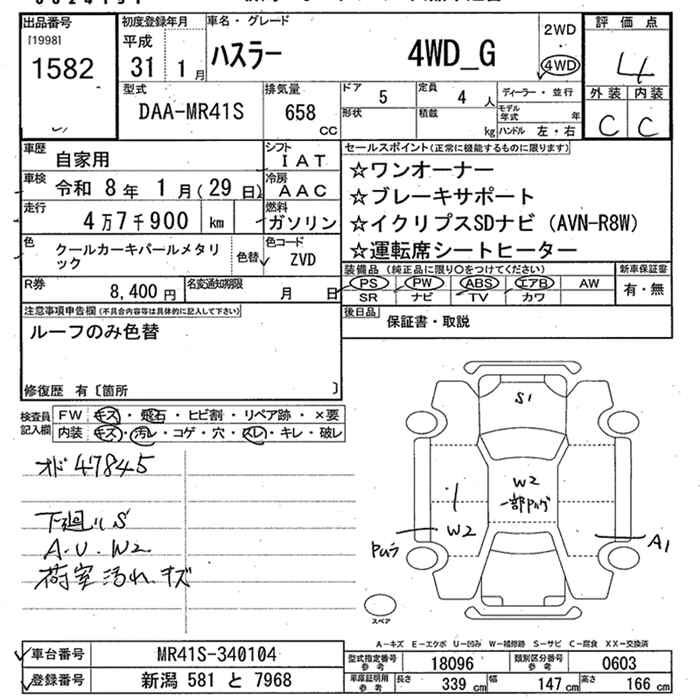 出品番号 初度登録年月 車名・グレード 2WD 評価点
[1998]
1582 平成 31 1月 ハスラー 4WD_G 4WD 4
型式 排気量 ドア 5 定員 4人 ディーラー・並行 外装 内装
DAA-MR41S 658 CC 形状 積載 kg モデル年式 年 C C
ハンドル 左・右
車歴 自家用 シフト IAT セールスポイント(正常に機能するものに限ります)
車検 令和 8年 1月(29日) 冷房 AAC ☆ワンオーナー
☆ブレーキサポート
走行 4万7千900 km 燃料 ガソリン ☆イクリプスSDナビ (AVN-R8W)
色 クールカーキパールメタリック 色替 色コード ZVD ☆運転席シートヒーター
装備品(純正品に限り○をつけてください) 新車保証書
R券 8,400円 名変通知期限 月 日 PS PW ABS エアB AW 有・無
SR ナビ TV カワ
注意事項申告欄(不具合内容等は具体的に記入して下さい) 後日品 保証書・取説
ルーフのみ色替
修復歴 有〔箇所 〕
検査員記入欄 FW キズ・飛石・ヒビ割・リペア跡・×要
内装 キズ・汚レ・コゲ・穴・スレ・キレ・破レ
オド 47845
下廻り S
A.U.W2
荷室汚れ、キズ
S1
W2
W2
A1
スペア
A-キズ E-エクボ U-凹み W-補修跡 S-サビ C-腐食 XX-交換済
車台番号 MR41S-340104 型式指定番号 参考 18096 類別区分番号 参考 0603
登録番号 新潟 581 と 7968 車庫証明用 参考 長さ 339cm 幅 147cm 高さ 166cm